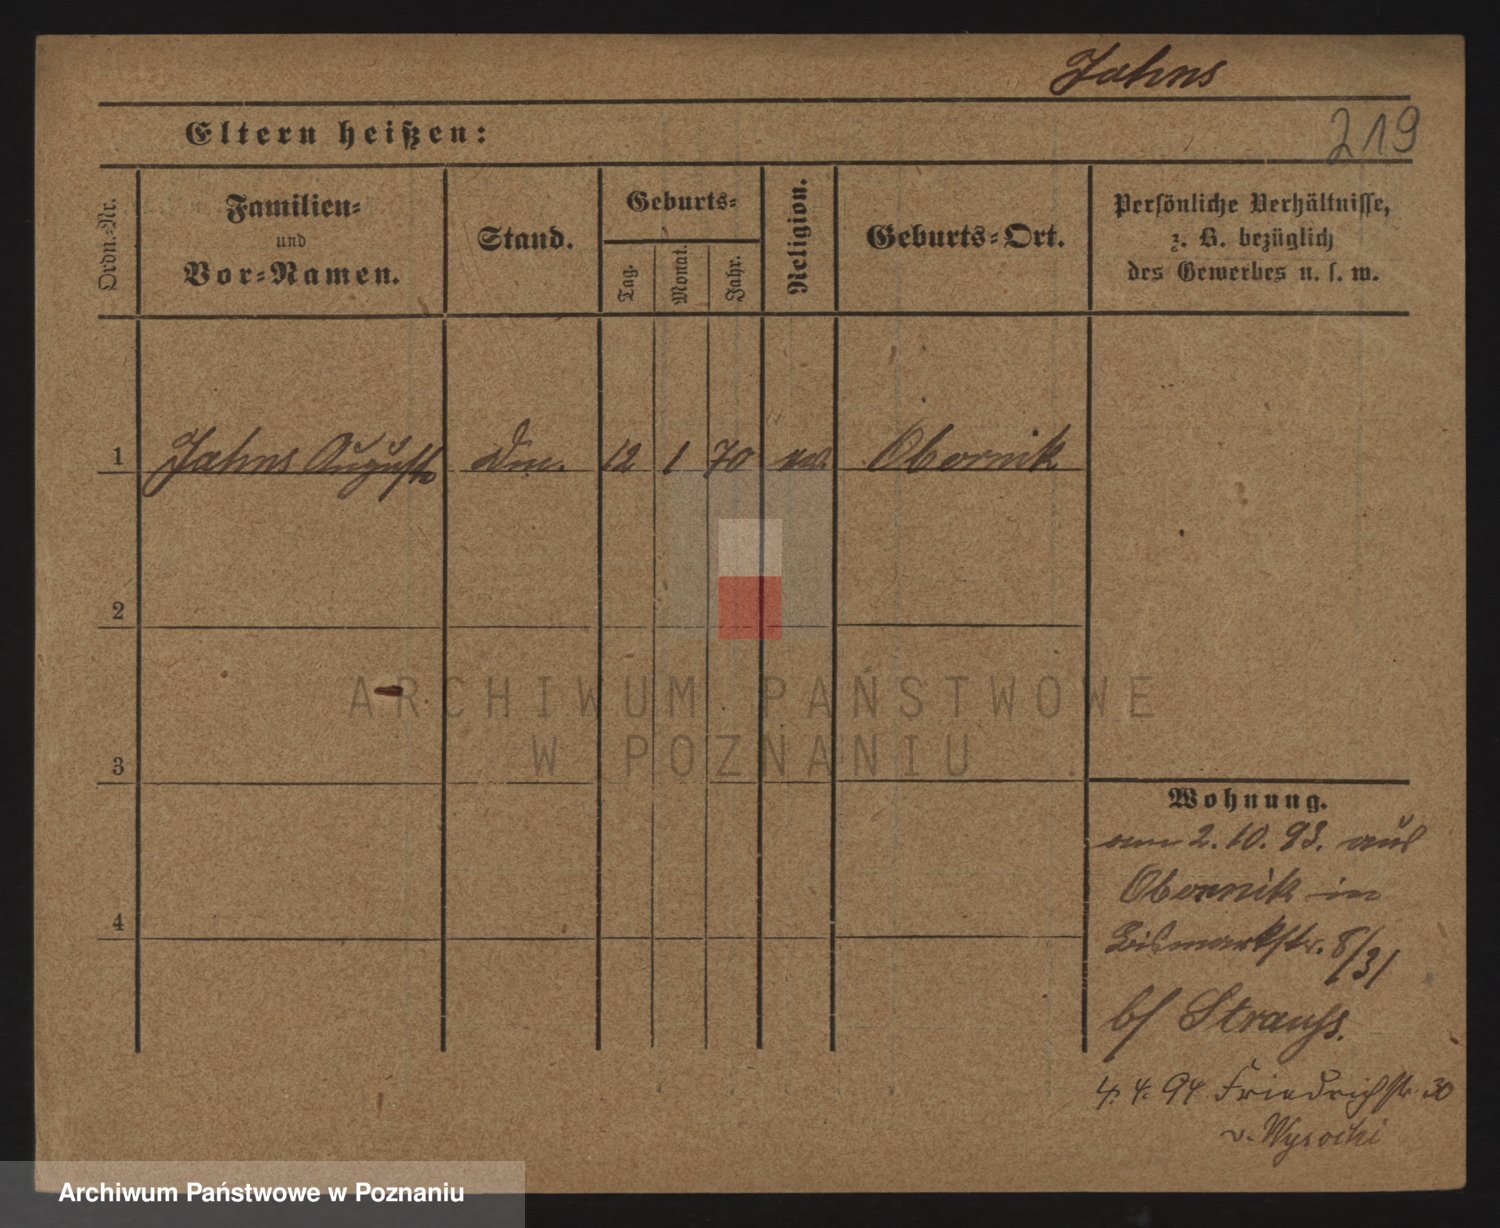 Jahns
219
Eltern heißen:
Ordn.-Nr.
Familien-
und
Vor-Namen.
Stand.
Geburts-
Tag.
Monat.
Jahr.
Religion.
Geburts-Ort.
Persönliche Verhältnisse,
z. B. bezüglich
des Gewerbes u. s. w.
1 Jahns August 12 1 70 Obornik
2
3
4
ARCHIWUM PAŃSTWOWE
W POZNANIU
Wohnung.
am 2. 10. 93. aus
Obornik in
Bismarkstr. 8/31
b/ Strauss.
4. 4. 94 Friedrichstr 30
v. Wysocki
Archiwum Państwowe w Poznaniu